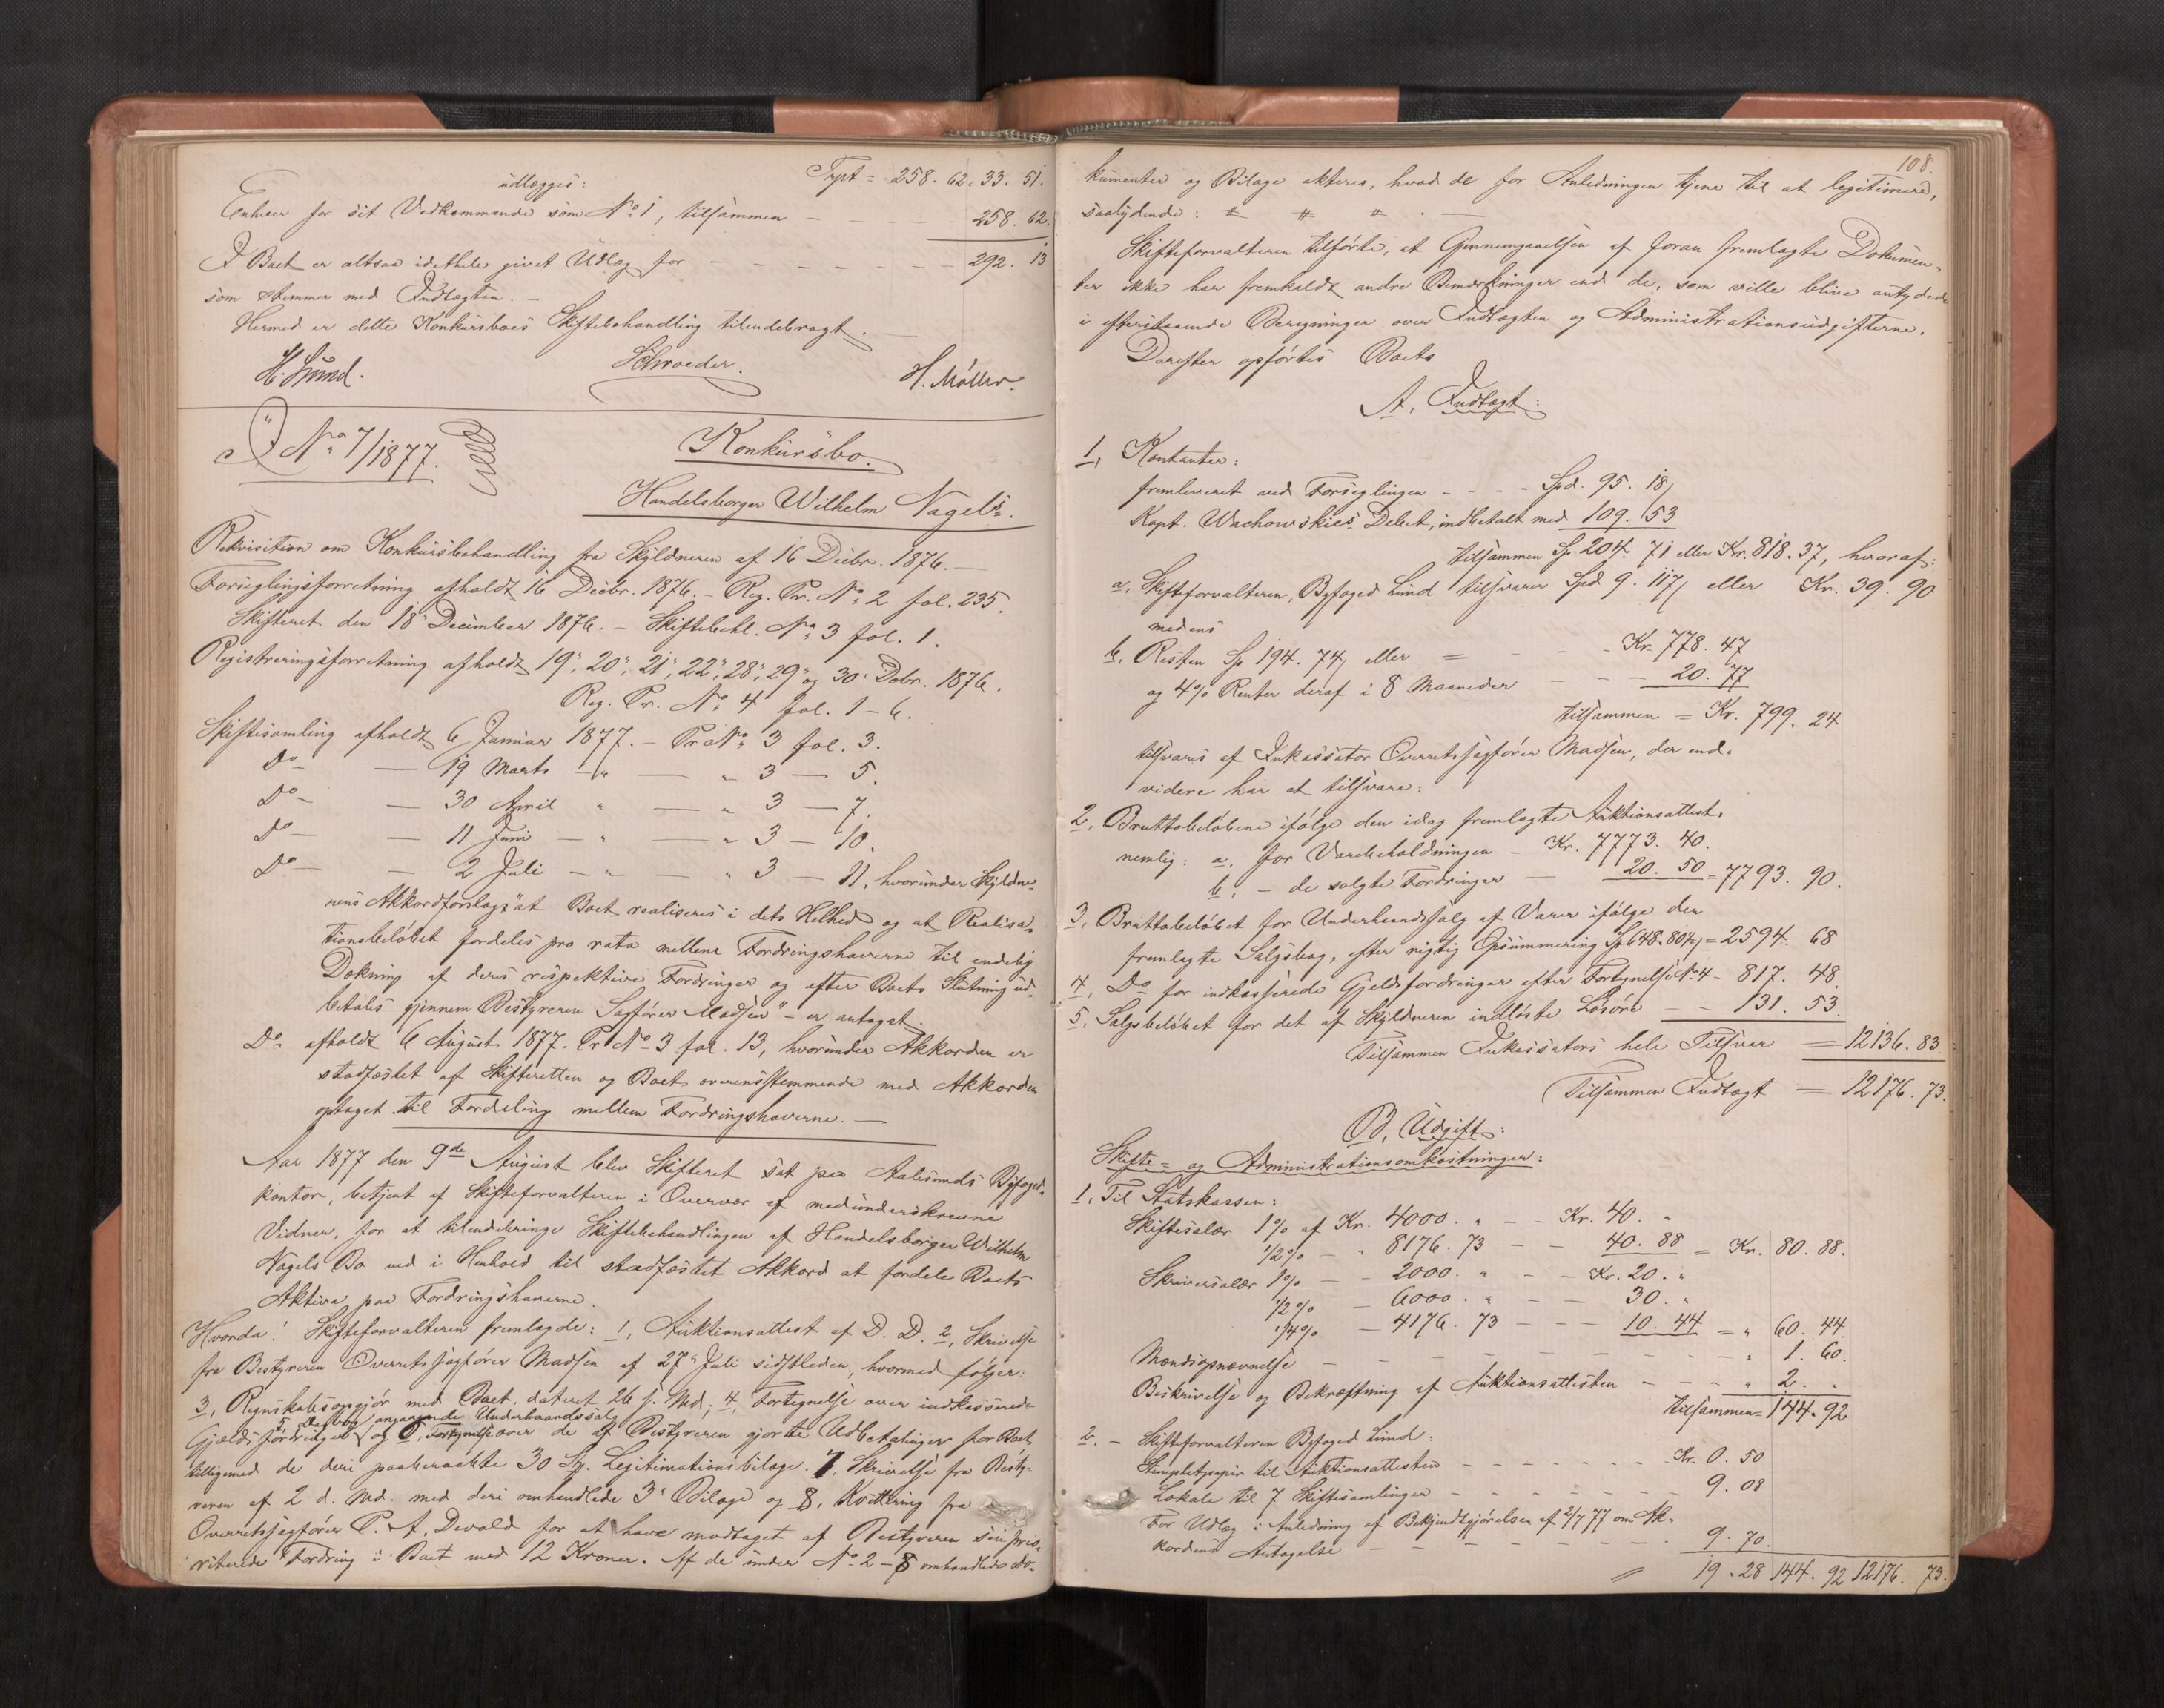 Trpt = 258. 62. 33. 51.
udlægges:
Enhver for sit Vedkommende som No 1, tilsammen - - - - 258. 62.
I Boet er altsaa idethele givet Udlæg for - - - - - - - 292. 13
som stemmer med Indtægten. -
Hermed er dette Konkursboes Skiftebehandling tilendebragt. -
H. Lund. Schroeder. H. Møller.
No 7/1877.
Konkursbo.
Handelsborger Wilhelm Nagels.
Rekvisition om Konkursbehandling fra Skyldneren af 16 Decbr. 1876. -
Forseglingsforretning afholdt 16 Decbr. 1876. - Reg. Pr. No 2 fol. 235.
Skifteret den 18 December 1876. - Skiftebehl. No 3 fol. 1.
Registreringsforretning afholdt 19, 20, 21, 22, 28, 29 og 30 Debr. 1876.
Reg. Pr. No 4 fol. 1 - 6.
Skiftesamling afholdt 6 Januar 1877. - Pr No 3 fol. 3.
Do - 19 Marts - " - " 3 - 5.
Do - 30 April " - " 3 - 7.
Do - 11 Juni - " - " 3 - 10.
Do - 2 Juli - " - " 3 - 11, hvorunder Skyldne-
rens Akkordforslag: "at Boet realiseres i dets Helhed og at Realisa-
tionsbeløbet fordeles pro rata mellem Fordringshaverne til endelig
Dækning af deres respektive Fordringer og efter Boets Slutning ud-
betales gjennem Bestyreren Sagfører Madsen" - er antaget.
Do afholdt 6 August 1877. Pr No 3 fol. 13, hvorunder Akkorden er
stadfæstet af Skifteretten og Boet overensstemmende med Akkorden
optaget til Fordeling mellem Fordringshaverne. -
Aar 1877 den 9de August blev Skifteret sat paa Aalesunds Byfoged-
kontor, betjent af Skifteforvalteren i Overvær af medunderskrevne
Vidner, for at tilendebringe Skiftebehandlingen af Handelsborger Wilhelm
Nagels Bo ved i Henhold til stadfæstet Akkord at fordele Boets
Aktiva paa Fordringshaverne.
Hvorda! Skifteforvalteren fremlagde: 1, Auktionsattest af D. D. 2, Skrivelse
fra Bestyreren Overretssagfører Madsen af 27 Juli sidstleden, hvormed følger:
3, Regnskabsopgjør med Boet, dateret 26 f. Md; 4, Fortegnelse over indkasserede
5, angaaende Underhaandssalg
Gjældsfordringer og 6, Fortegnelse over de af Bestyreren gjorte Udbetalinger for Boet
tilligemed de deri paaberaabte 30 St. Legitimationsbilage. 7, Skrivelse fra Besty-
reren af 2 d. Md. med deri omhandlede 3 Bilage og 8, Kvittering fra
Overretssagfører P. A. Devold for at have modtaget af Bestyreren sin pri-
riterede Fordring i Boet med 12 Kroner. Af de under No 2 - 8 omhandlede Do-
108.
kumenter og Bilage akteres, hvad de for Anledningen tjene til at legitimere,
saalydende: # # # . -
Skifteforvalteren tilførte, at Gjennemgaaelsen af foran fremlagte Dokumen-
ter ikke har fremkaldt andre Bemærkninger end de, som ville blive antydede
i efterstaaende Beregninger over Indtægten og Administrationsudgifterne.
Derefter opførtes Boets
A, Indtægt:
1, Kontanter:
fremleveret ved Forseglingen - - - Spd. 95. 18,
Kapt. Wachowskies Debet, indbetalt med 109. 53
tilsammen Sp. 204. 71 eller Kr. 818. 37, hvoraf:
a, Skifteforvalteren, Byfoged Lund tilsvarer Spd 9. 117, eller Kr. 39. 90
medens
b, Resten Sp 194. 74, eller = - - - Kr. 778. 47
og 4% Renter deraf i 8 Maaneder - - - 20. 77
tilsammen = Kr. 799. 24
tilsvares af Inkassator Overretssagfører Madsen, der end-
videre har at tilsvare:
2, Bruttobeløbene ifølge den idag fremlagte Auktionsattest,
nemlig: a, for Varebeholdningen - Kr. 7773. 40.
b, - de solgte Fordringer - 20. 50 = 7793. 90.
3, Bruttobeløbet for Underhaandssalg af Varer ifølge den
fremlagte Salgsbog, efter rigtig Opsummering Sp 648. 80½, = 2594. 68
4, Do for indkasserede Gjeldsfordringer efter Fortegnelse No 4 - 817. 48.
5, Salgsbeløbet for det af Skyldneren indløste Løsøre - - 131. 53.
Tilsammen Inkassators hele Tilsvar = 12136. 83
Tilsammen Indtægt = 12176. 73.
B, Udgift:
Skifte- og Administrationsomkostninger:
1, Til Statskassen:
Skiftesalær 1% af Kr. 4000. " - - Kr. 40. "
1/2% - " 8176. 73 - - 40. 88 = Kr. 80. 88.
Skriversalær 1% - - 2000. " - - Kr. 20. "
1/2% - 6000. " - - 30. "
1/4% - 4176. 73 - - - 10. 44 = " 60. 44
Mændsopnævnelse - - - - - - - - " 1. 60.
Beskrivelse og Bekræftning af Auktionsattesten - - - " 2. "
tilsammen = 144. 92
2. - Skifteforvalteren Byfoged Lund:
Stempletpapir til Auktionsattesten - - - - - - Kr. 0. 50
Lokale til 7 Skiftesamlinger - - - - - - 9. 08
For Udlæg i Anledning af Bekjendtgjørelsen af 2/7 77 om Ak-
kordens Antagelse - - - - - - - 9. 70.
19. 28 144. 92 12176. 73.